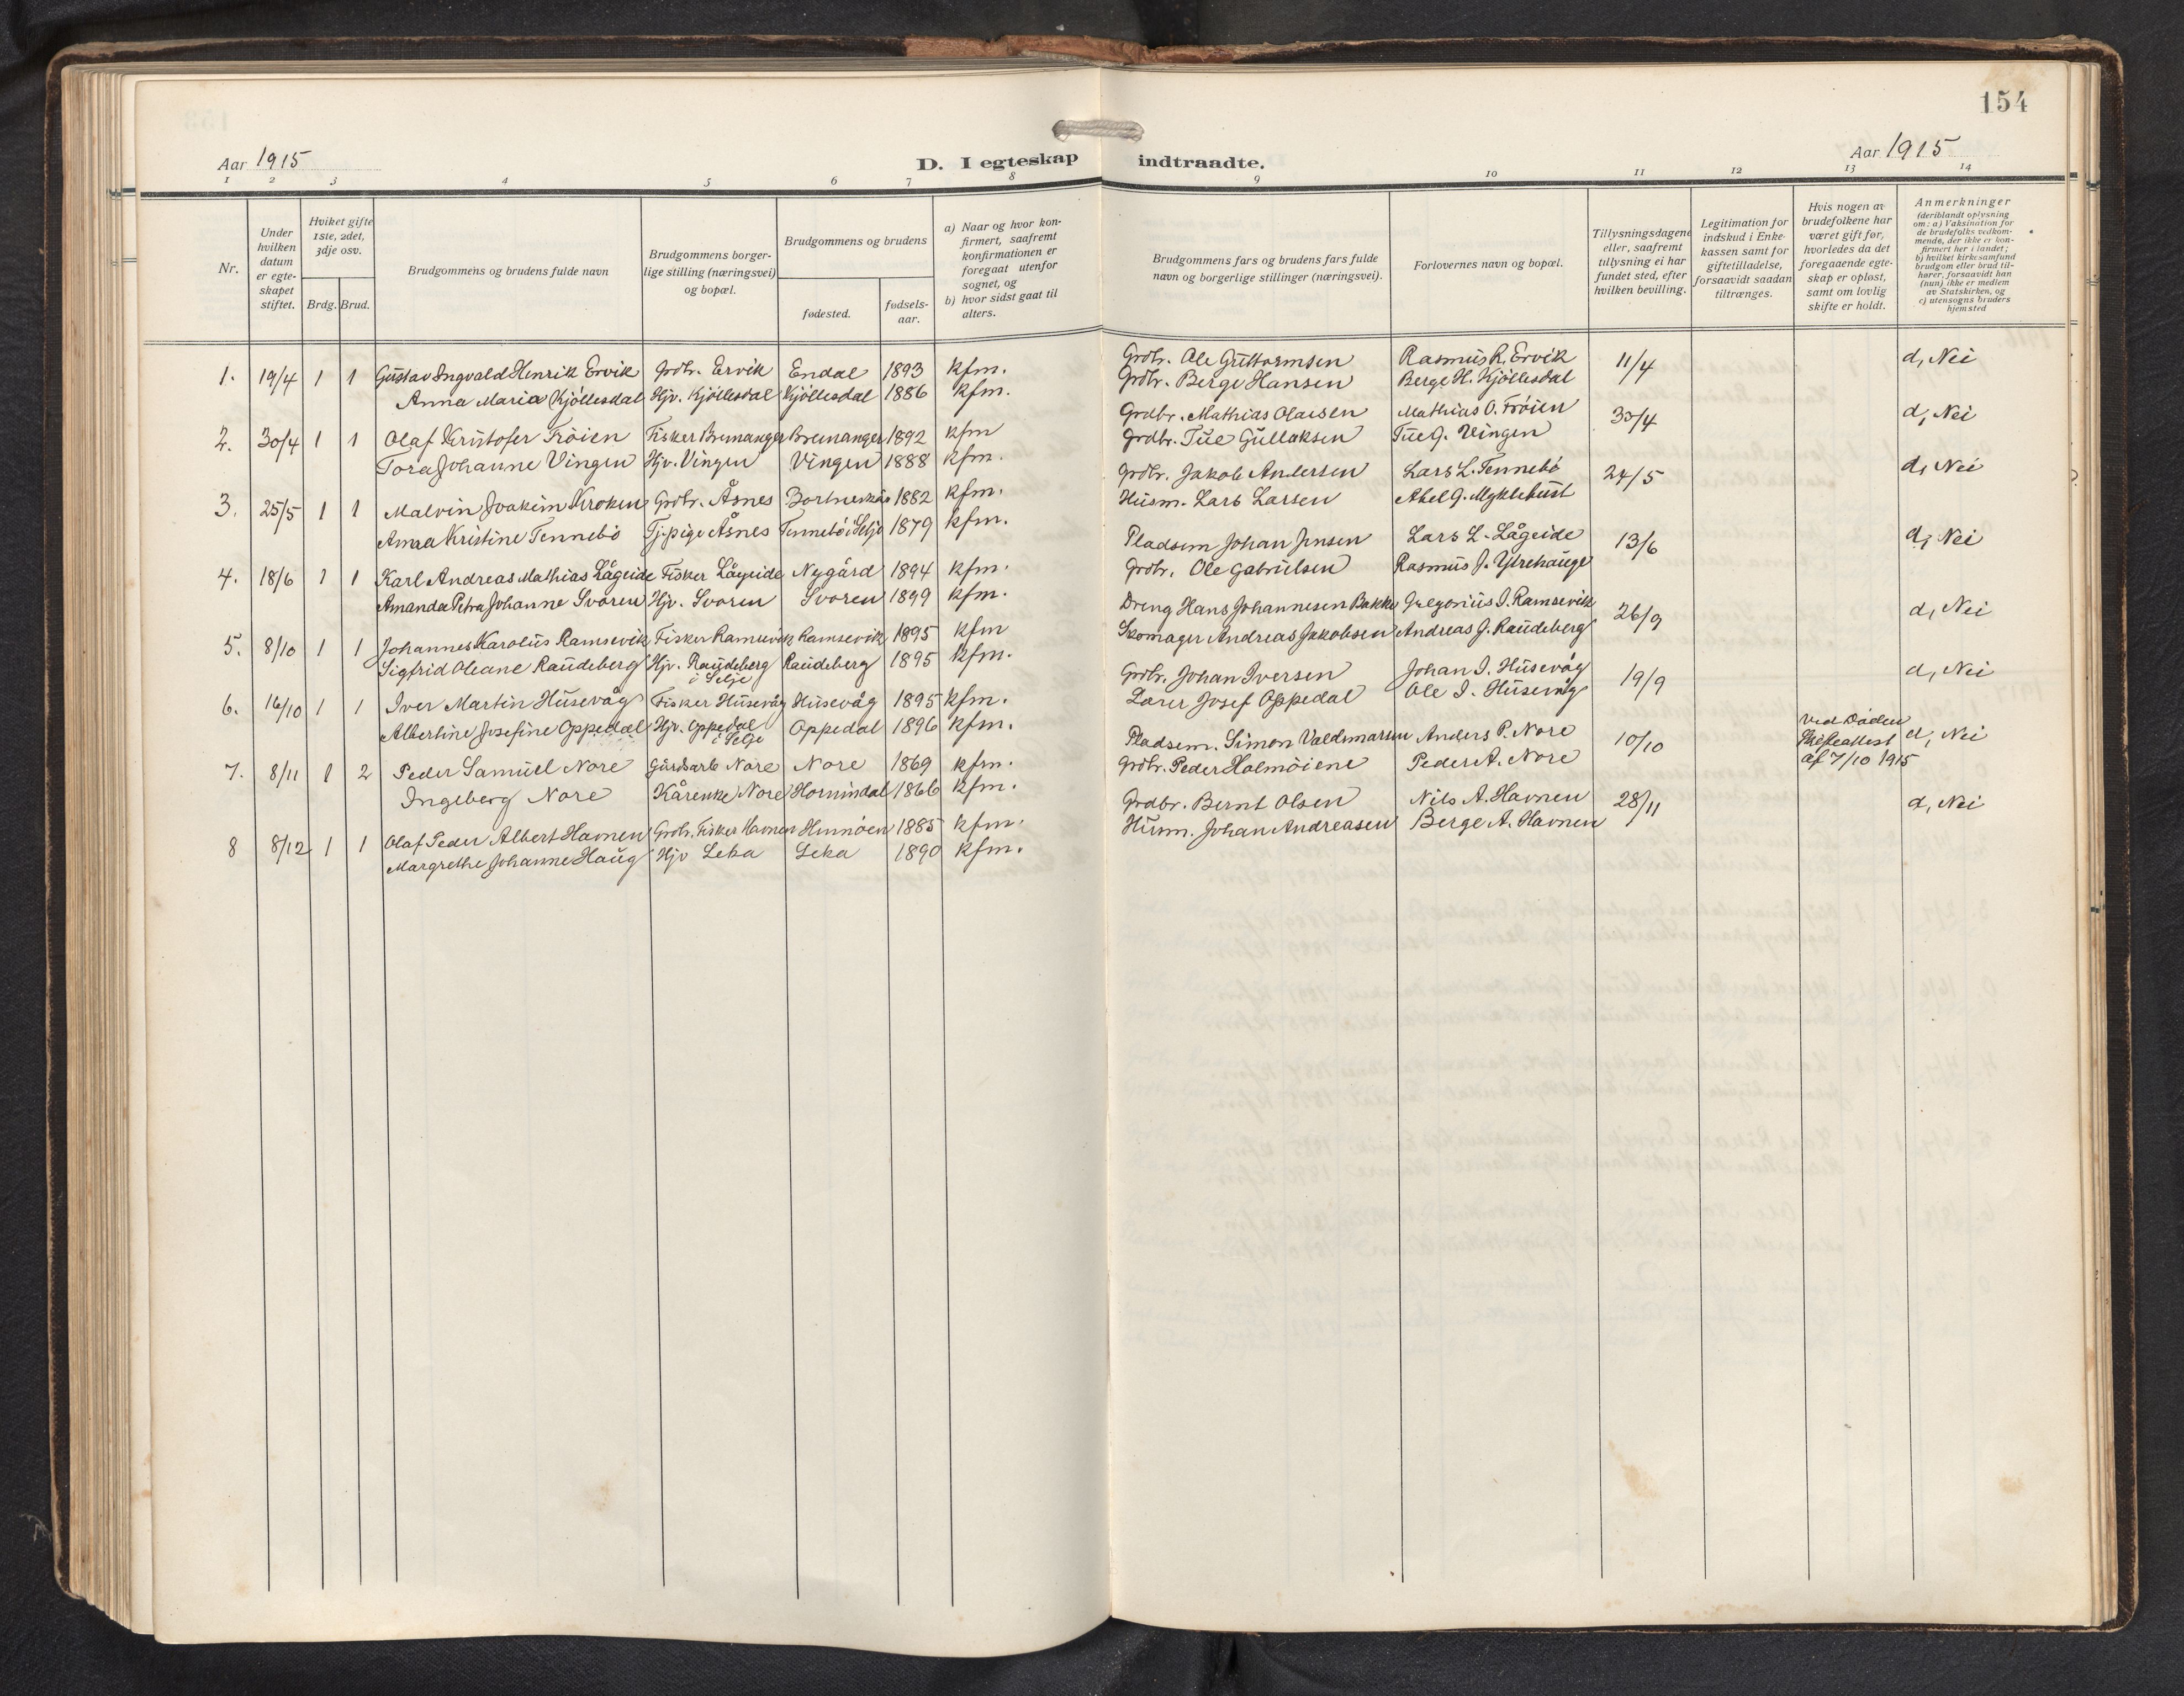 154
Aar 1915
D. I egteskap indtraadte.
Aar 1915
1 2 3 4 5 6 7 8 9 10 11 12 13 14
Nr.
Under hvilken datum er egteskapet stiftet.
Hviket gifte 1ste, 2det, 3dje osv.
Brdg. Brud.
Brudgommens og brudens fulde navn
Brudgommens borgerlige stilling (næringsvei) og bopæl.
Brudgommens og brudens
fødested.
fødselsaar.
a) Naar og hvor konfirmert, saafremt konfirmationen er foregaat utenfor sognet, og
b) hvor sidst gaat til alters.
Brudgommens fars og brudens fars fulde navn og borgerlige stillinger (næringsvei).
Forlovernes navn og bopæl.
Tillysningsdagene eller, saafremt tillysning ei har fundet sted, efter hvilken bevilling.
Legitimation for indskud i Enkekassen samt for giftetilladelse, forsaavidt saadan tiltrænges.
Hvis nogen av brudefolkene har været gift før, hvorledes da det foregaaende egteskap er opløst, samt om lovlig skifte er holdt.
Anmerkninger
(deriblandt oplysning om: a) Vaksination for de brudefolks vedkommende, der ikke er konfirmert her i landet; b) hvilket kirkesamfund brudgom eller brud tilhører, forsaavidt han (hun) ikke er medlem av Statskirken, og c) utensogns bruders hjemsted
1. 19/4 1 1 Gustav Ingvald Henrik Ervik Grdbr. Ervik Endal 1893 kfm. Grdbr. Ole Guttormsen Rasmus R. Ervik 11/4 d, Nei
Anna Maria Kjöllesdal Hjv. Kjöllesdal Kjöllesdal 1886 kfm. Grdbr. Berge Hansen Berge H. Kjöllesdal
2. 30/4 1 1 Olaf Kristofer Fröien Fisker Bremanger Bremanger 1892 kfm Grdbr. Mathias Olaisen Mathias O. Fröien 30/4 d, Nei
Tora Johanne Vingen Hjv. Vingen Vingen 1888 kfm. Grdbr. Tue Gullaksen Tue G. Vingen
3. 25/5 1 1 Malvin Joakim Kroken Grdbr. Åsnes Bortneskår 1882 kfm. Grdbr. Jakob Andersen Lars L. Tennebö 24/5 d, Nei
Anna Kristine Tennebö Tj.pige Åsnes Tennebö i Selje 1879 kfm. Husm. Lars Larsen Abel G. Myklebust
4. 18/6 1 1 Karl Andreas Mathias Lågeide Fisker Lågeide Nygård 1894 kfm. Pladsem Johan Jensen Lars L. Lågeide 13/6 d, Nei
Amanda Petra Johanne Svoren Hjv. Svoren Svoren 1899 kfm. Grdbr. Ole Gabrielsen Rasmus J. Ytrehauge
5. 8/10 1 1 Johannes Karolus Ramsevik Fisker Ramsevik Ramsevik 1895 kfm Dreng Hans Johannesen Bakke Gregorius I. Ramsevik 26/9 d, Nei
Sigfrid Oleane Raudeberg Hjv. Raudeberg i Selje Raudeberg 1895 kfm. Skomager Andreas Jakobsen Andreas J. Raudeberg
6. 16/10 1 1 Iver Martin Husevåg Fisker Husevåg Husevåg 1895 kfm. Grdbr. Johan Iversen Johan I. Husevåg 19/9 d, Nei
Albertine Josefine Oppedal Hjv. Oppedal i Selje Oppedal 1896 kfm. Lærer Josef Oppedal Ole I. Husevåg
7. 8/11 1 2 Peder Samuel Nore Gårdsarb Nore Nore 1869 kfm. Pladsem. Simon Valdemarsen Anders P. Nore 10/10 Ved Döden Skifteattest af 7/10 1915 d, Nei
Ingeberg Nore Kårenke Nore Hornindal 1866 kfm. Grdbr. Peder Holmöiene Peder A. Nore
8 8/12 1 1 Olaf Peder Albert Havnen Grdbr. Fisker Havnen Hennöen 1885 kfm. Grdbr. Bernt Olsen Nils A. Havnen 28/11 d, Nei
Margrethe Johanne Haug Hjv Leka Leka 1890 kfm. Husm. Johan Andreasen Berge A. Havnen